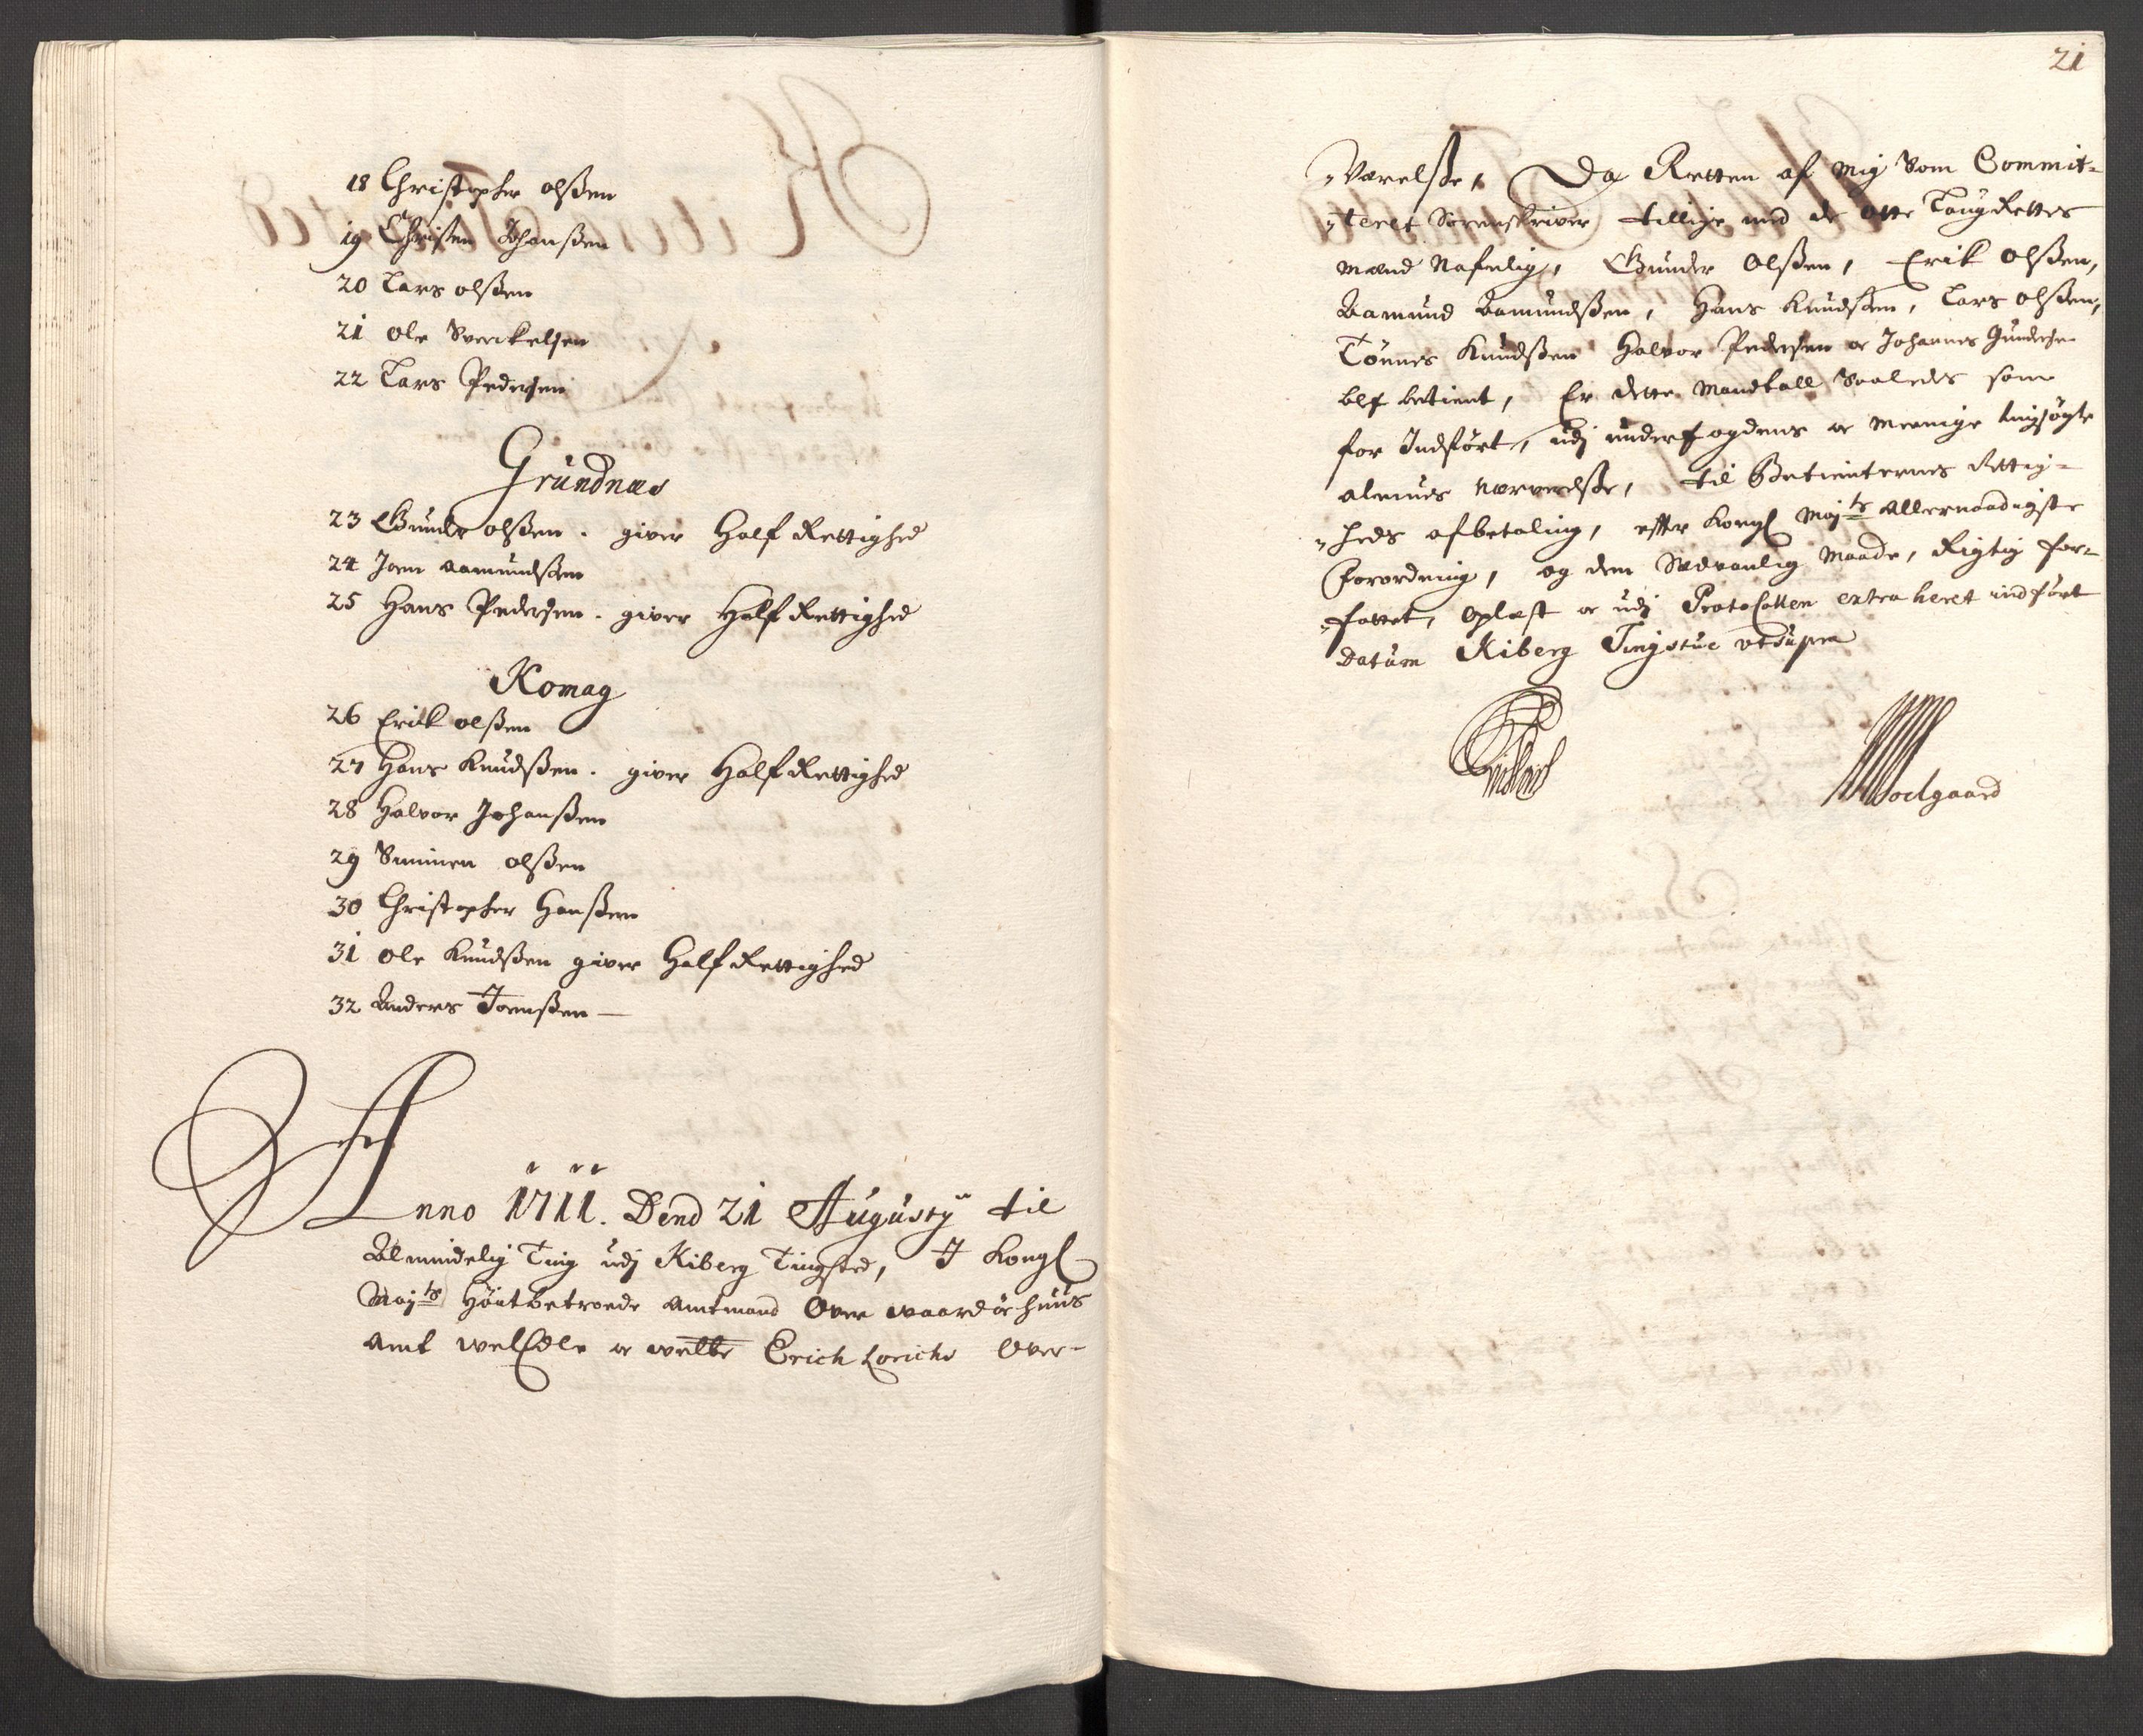 18 Christopher olsßen
19 Christen Johansßen
20 Lars olsßen
21 ole Sverckelsen
22 Lars Pedersen
Grundnæs
23 Gunder olsßen. giver Half Rettighed
24 Joen Aamundsßen
25 Hans Pedersen. giver Half Rettighed
Komag
26 Erick olsßen
27 Hans Knudsßen. giver Half Rettighed
28 Halvor Johansßen
29 Simmen olsßen
30 Christopher Hansßen
31 ole Knudsßen giver Half Rettighed
32 Anders Joensßen
Anno 1711. Dend 21 Augusty til
Almindelig Ting udj Kiberg Tingsted, I Kongl
Maj:ts Høÿtbetroede Amtmand Over Waardøehuus
Amt welEdle oc welbr Erich Lorichs Over-
21
Værelsße, Da Retten af mig Som Commit-
teret Sorenskriver tillige med de otte Laugrettes
mænd Nafnlig, Gunder Olsßen, Erik Olsßen,
Aamund Aamundsßen, Hans Knudsßen, Lars Olsßen,
Tønnes Knudsßen Halvor Pedersen oc Johannes Gundersen
blef betient, Er dette Mandtall Saaledes som
for Indført, udj underfogdens oc meenige tingsøgte
almues nærverelsße, til Betienternes Rettig-
heds afbetaling, efter Kongl Maj:ts Allernaadigste
Forordning, og den Sædvanlig Maade, Rigtig for-
fattet, Oplæst oc udj Protocollen extraheret indført
Datum Kiberg Tingstue ut supra
Wodgaard